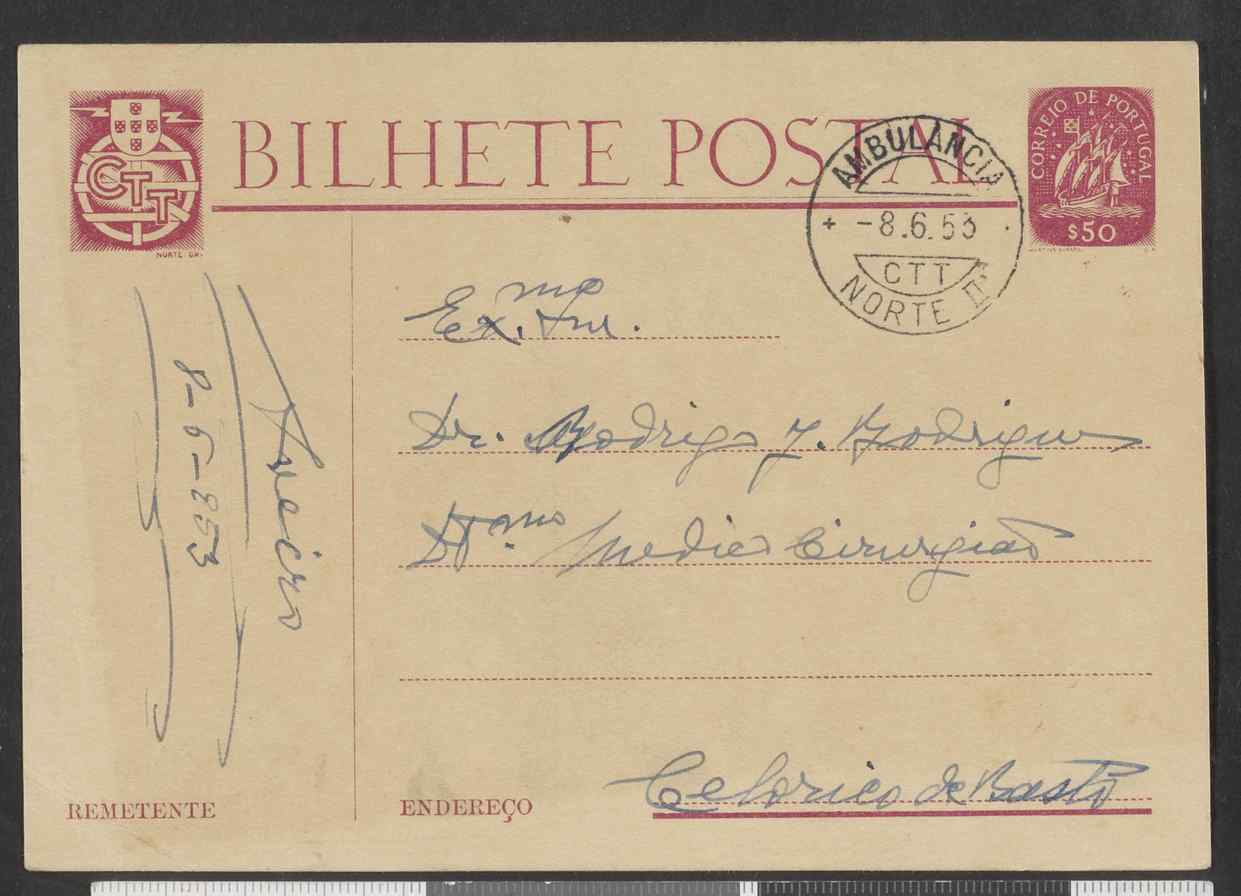 BILHETE POSTAL
CTT
NORTE. GR.
CORREIO DE PORTUGAL
$50
AMBULANCIA
-8.6.53
CTT
NORTE II
Ex.mo Snr.
Dr. Rodrigo J. Rodrigues
D.mo Medico Cirurgião
Celorico de Basto
8-6-953
REMETENTE
ENDEREÇO